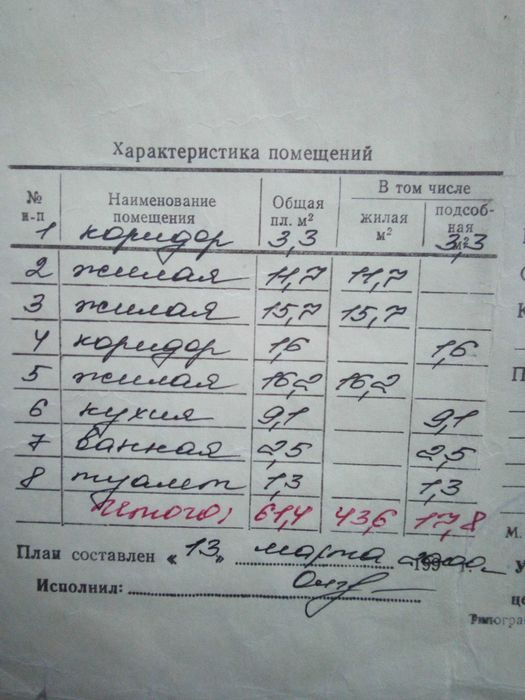 Характеристика помещений
№ и-п Наименование помещения Общая пл. м² В том числе жилая м² подсобная м²
1 коридор 3,3 3,3
2 жилая 11,7 11,7
3 жилая 15,7 15,7
4 коридор 1,6 1,6
5 жилая 16,2 16,2
6 кухня 9,1 9,1
7 ванная 2,5 2,5
8 туалет 1,3 1,3
Итого: 61,4 43,6 17,8
План составлен «13» марта 2000 199 г.
Исполнил: